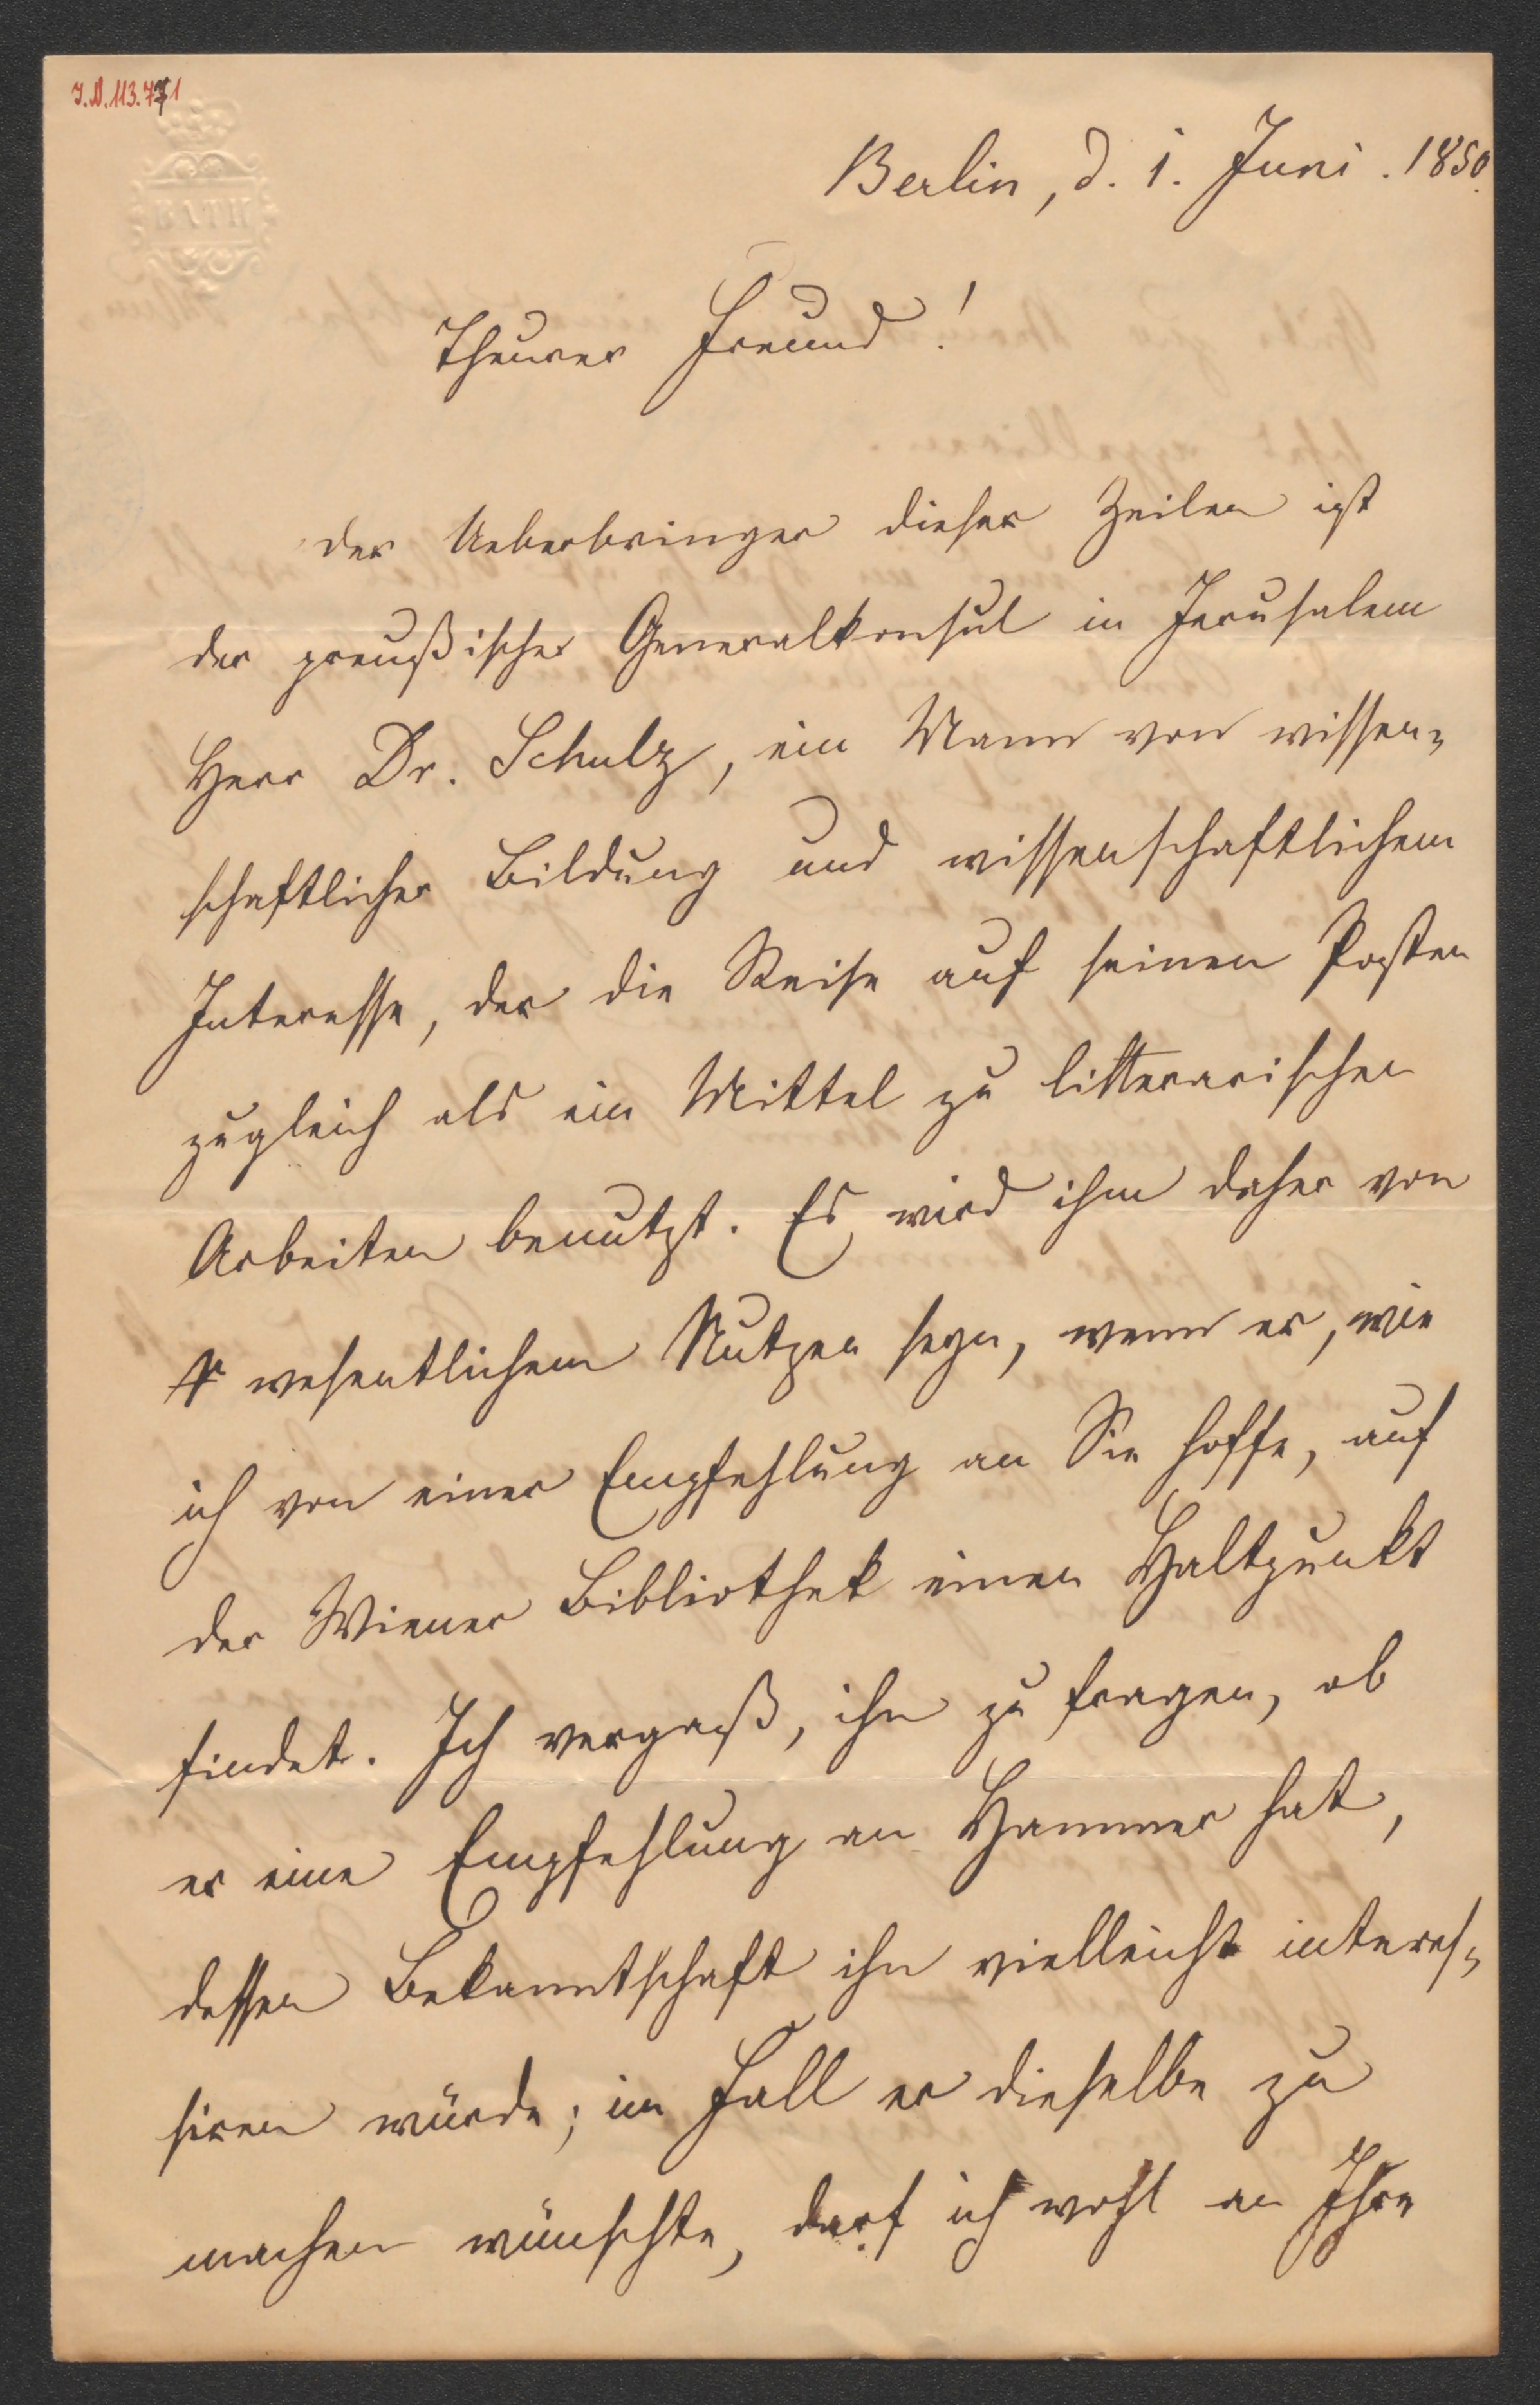 J.N. 113.771
BATH
Berlin, d. 1. Juni. 1850.
Theurer Freund!
der Ueberbringer dieser Zeilen ist
der preußische Generalkonsul in Jerusalem
Herr Dr. Schulz, ein Mann von wissen-
schaftlicher Bildung und wissenschaftlichem
Interesse, der die Reise auf seinen Posten
zugleich als ein Mittel zu litterarischen
Arbeiten benutzt. Es wird ihm daher von
wesentlichem Nutzen seyn, wenn er, wie
ich von einer Empfehlung an Sie hoffe, auf
der Wiener Bibliothek einen Haltpunkt
findet. Ich vergaß, ihn zu fragen, ob
er eine Empfehlung an Hammer hat,
dessen Bekanntschaft ihn vielleicht interes-
siren würde; im Fall er dieselbe zu
machen wünschte, darf ich wohl an Ihre